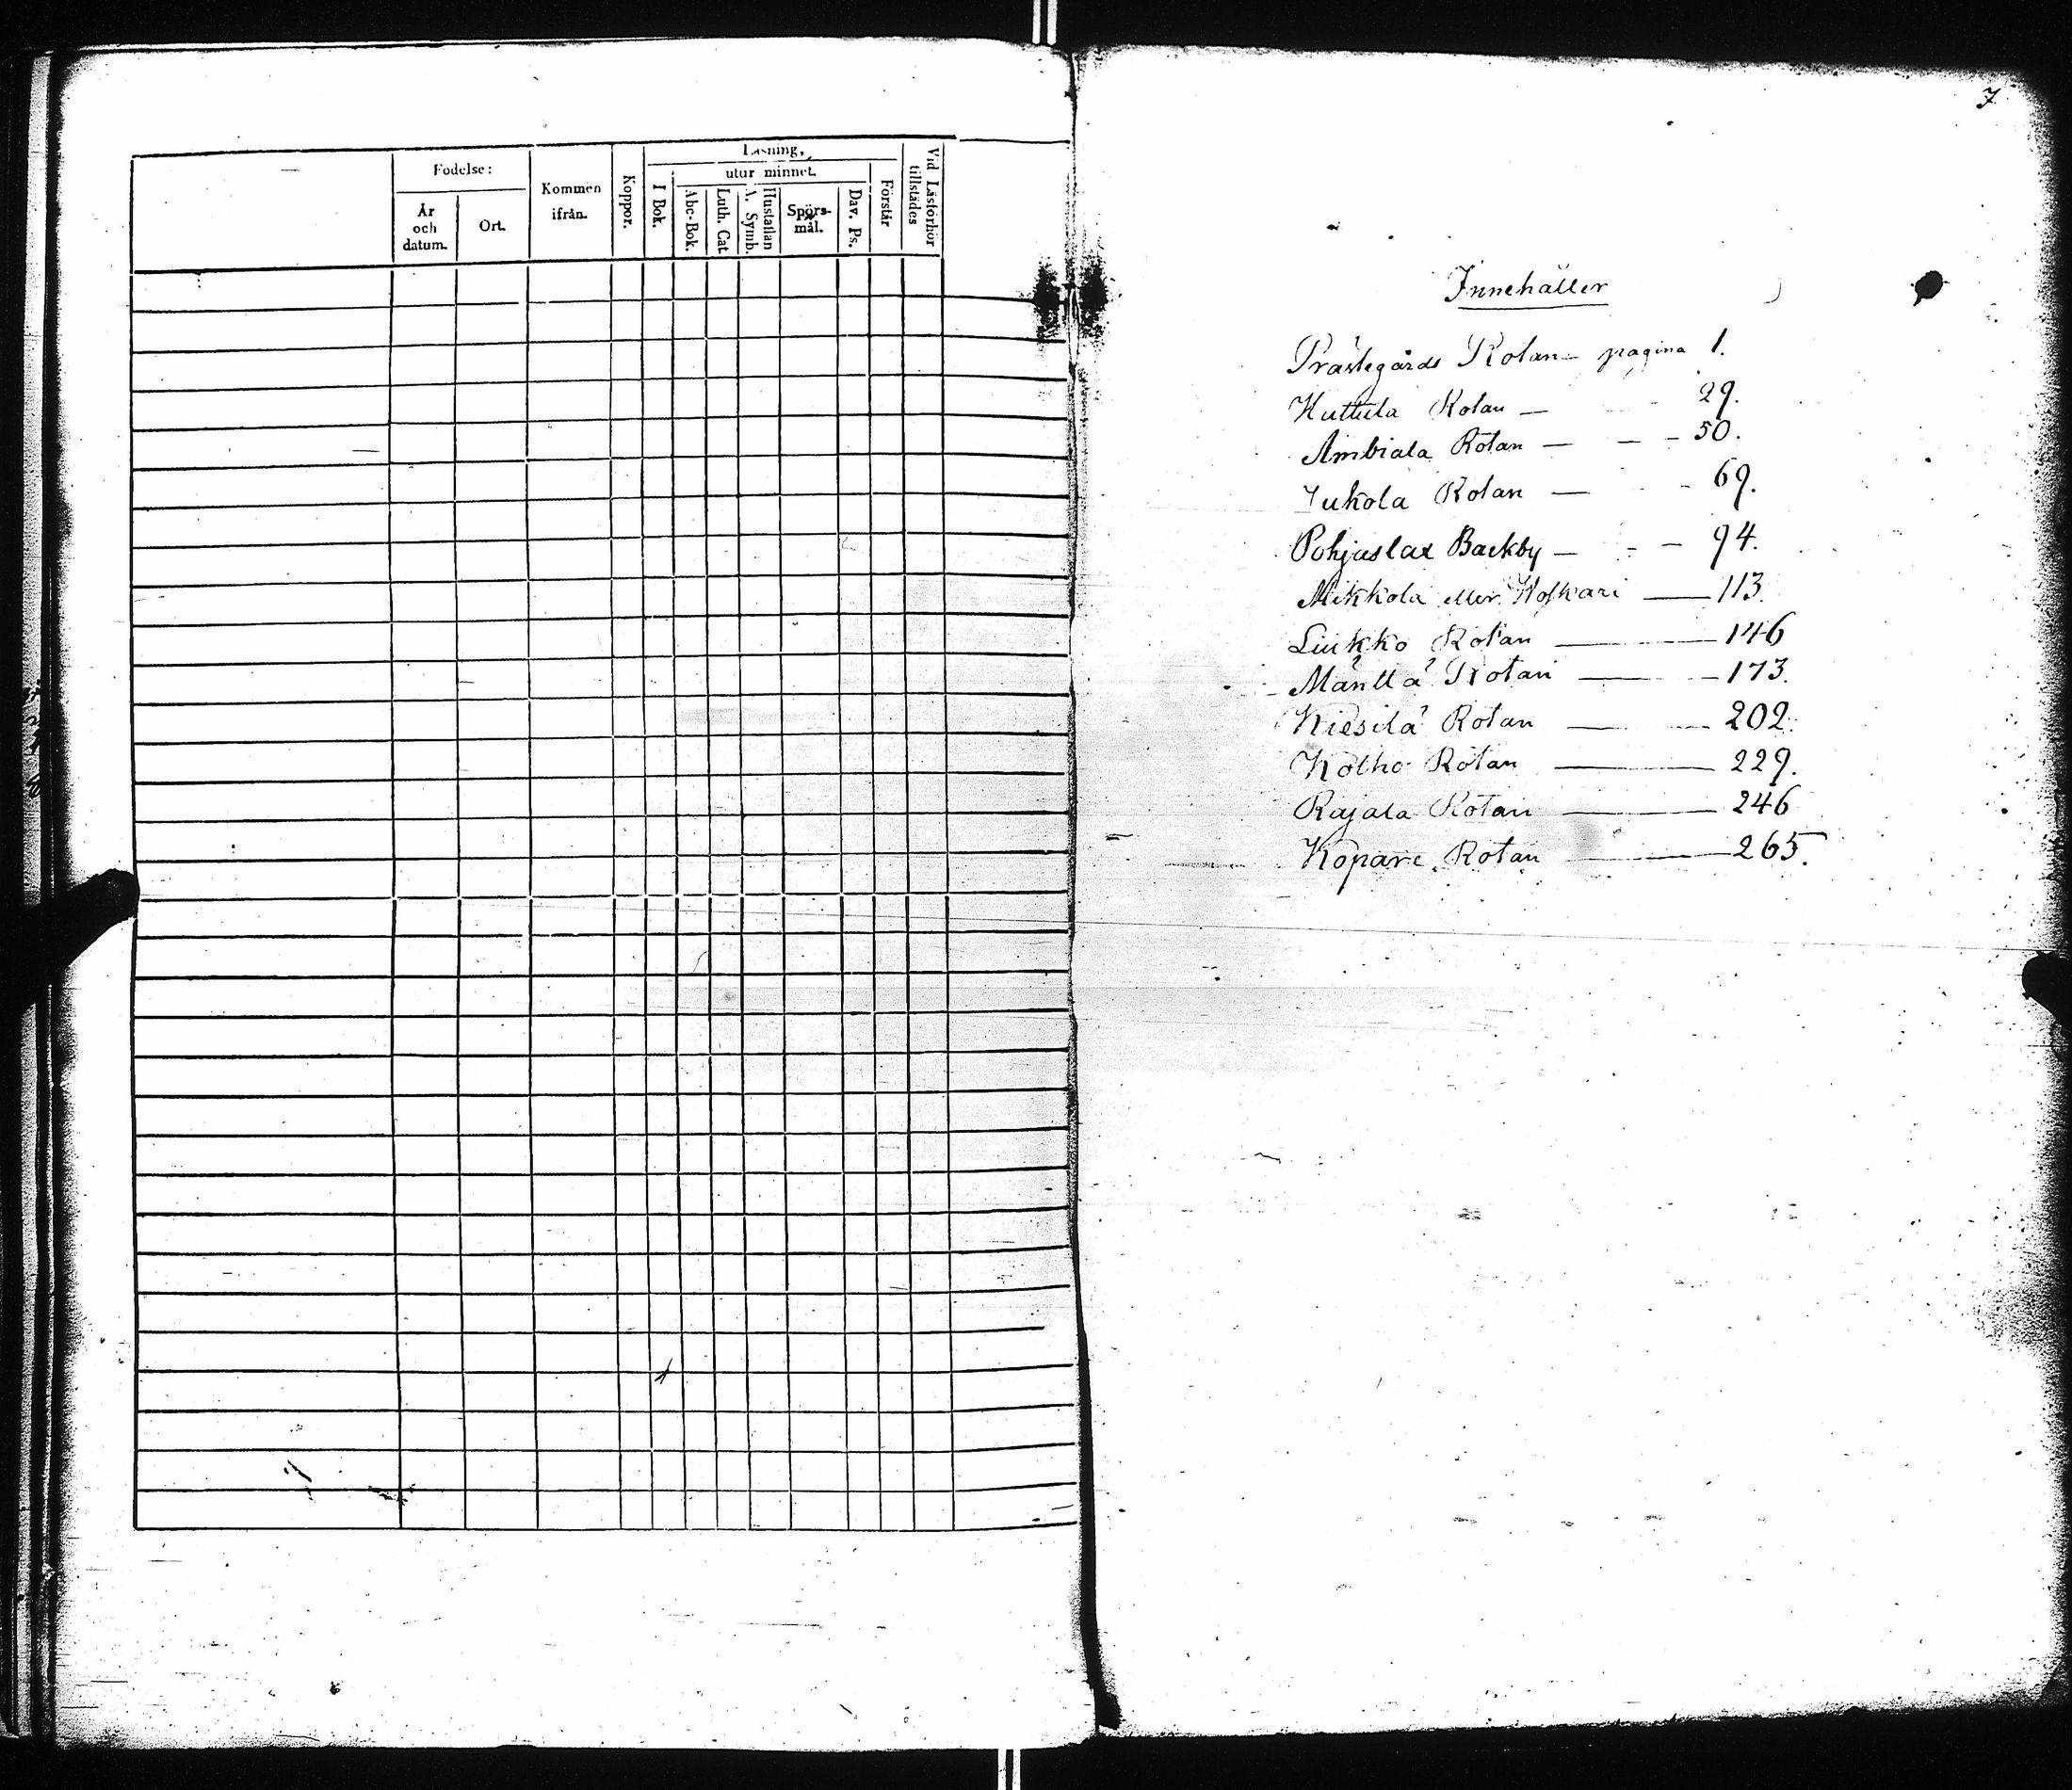 Läsning,
Födelse:
utur minnet.
Kommen
ifrån.
År
och
datum.
Ort.
Koppor.
I Bok.
Abc-Bok.
Luth. Cat
A. Symb.
Hustaflan
Spörs-
mål.
Dav. Ps.
Förstår
Vid Läsförhör
tillstädes
7
Innehåller
Prästegårds Rotan — pagina 1.
Huttula Rotan — - 29.
Ambiala Rotan — — - 50.
Jukola Rotan — - 69.
Pohjaslax Backby — - — 94.
Mikkola eller — 113.
Liukko Rotan — 146
Mänttä Rotan — 173.
Kiesilä Rotan — 202.
Kotho Rotan — 229.
Rajala Rotan — 246
Kopare Rotan — 265.